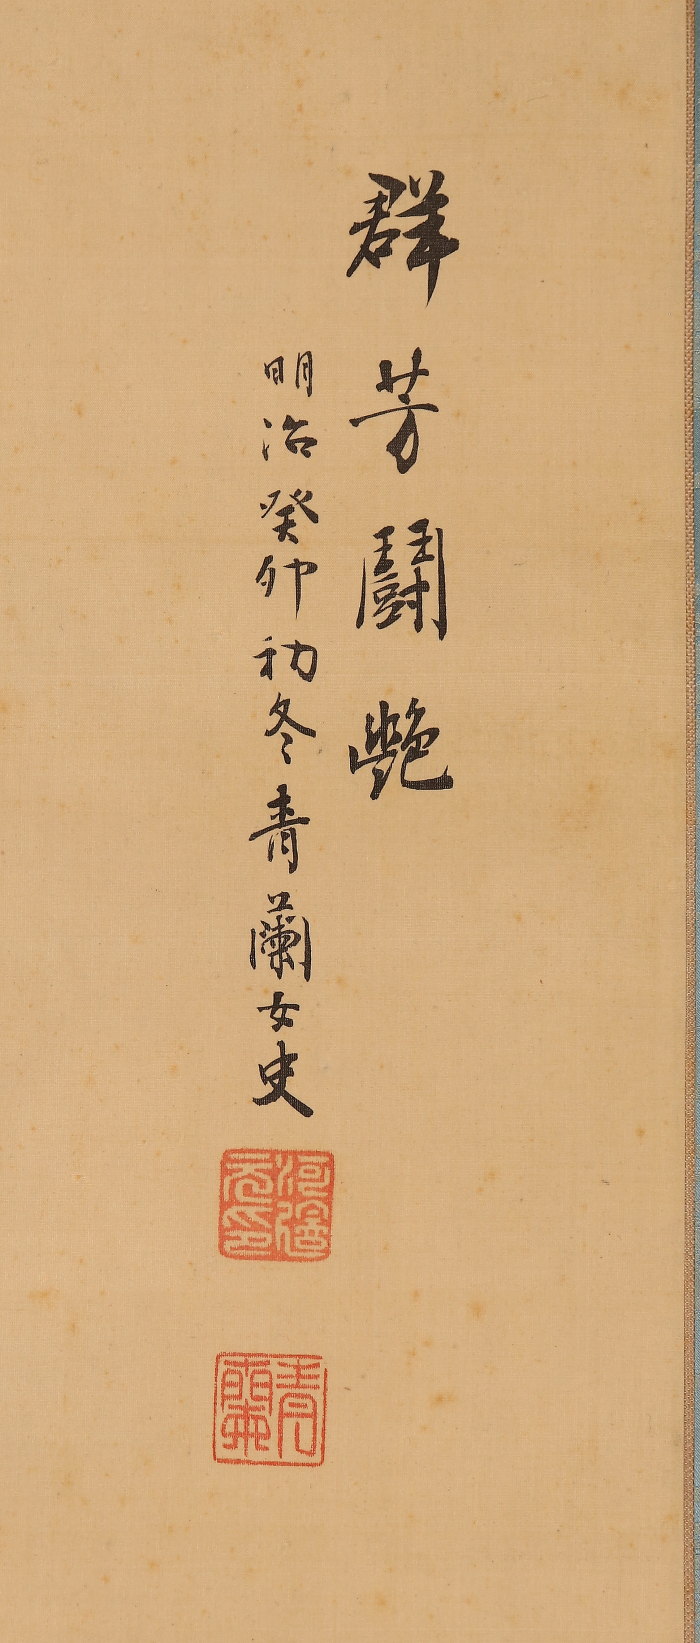 群芳鬪艶
明治癸卯初冬青蘭女史
青蘭